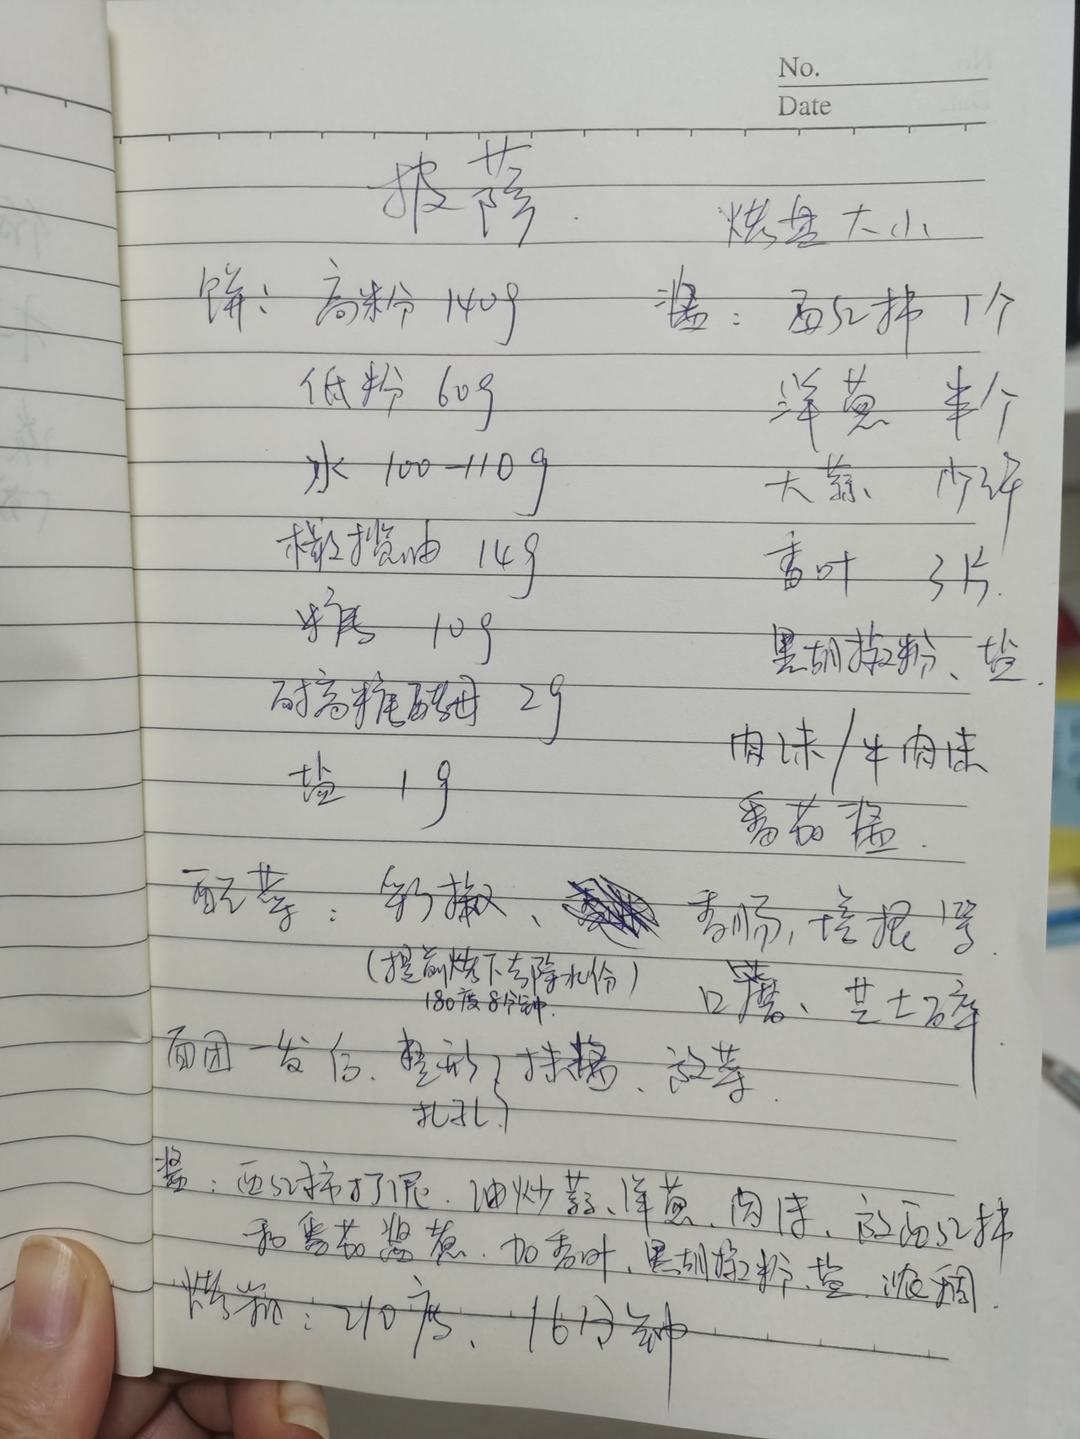 No.
Date
披萨.
烤盘大小
饼: 高粉 140g
低粉 60g
水 100-110g
橄榄油 14g
糖 10g
耐高糖酵母 2g
盐 1g
酱: 西红柿 1个
洋葱 半个
大蒜、少许
香叶 3片.
黑胡椒粉、盐.
肉沫/牛肉沫
番茄酱.
配菜: 彩椒、香肠,培根等.
(提前烤下去除水份)
180度8分钟.
口蘑、芝士碎.
面团一发后.整形 抹酱、放菜.
扎孔
酱: 西红柿打泥.油炒蒜、洋葱、肉沫、放西红柿
和番茄酱熬.加香叶、黑胡椒粉、盐.浓稠.
烤箱: 210度、16分钟